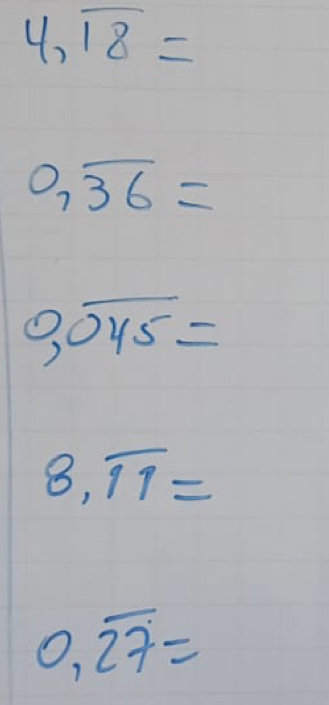 4,1̅8̅ =
0,3̅6̅ =
0,0̅4̅5̅ =
8,1̅1̅ =
0,2̅7̅ =